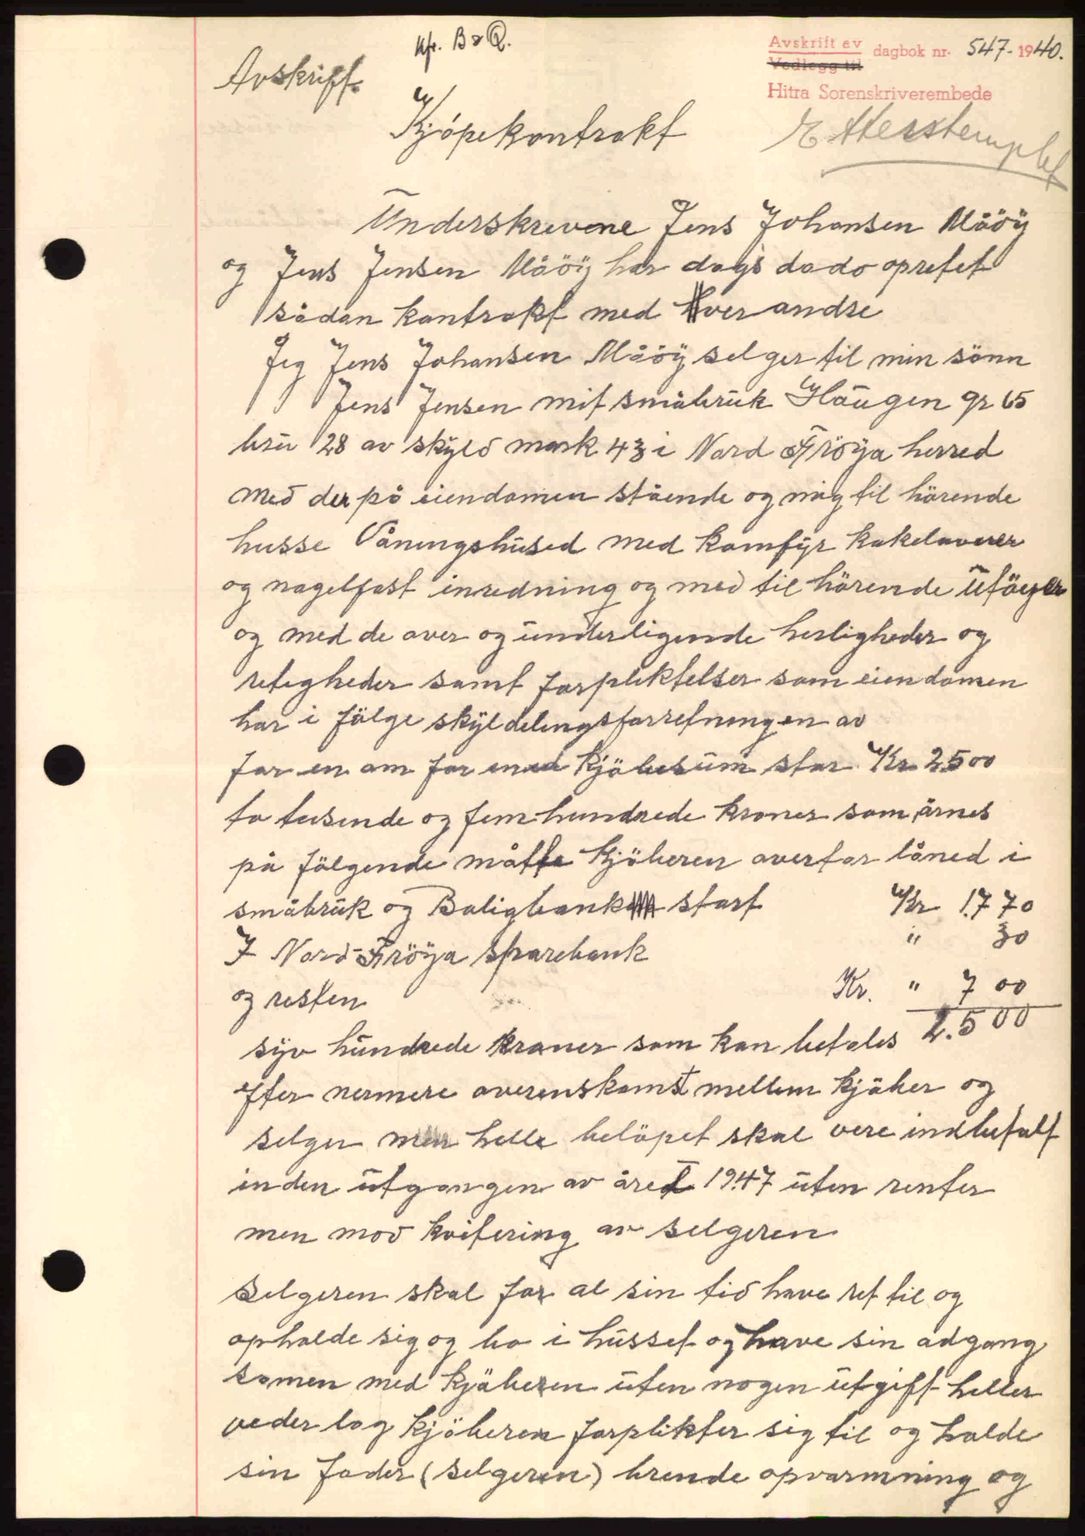 Kfr. B & Q.
Avskrift ev dagbok nr. 547-1940.
Vedlegg til
Hitra Sorenskriverembede
Avskrift.
Kjöpekontrakt
Etterstemplet
Underskrevene Jens Johansen Måöÿ
og Jens Jensen Måöÿ har dags dado opretet
sådan kontrakt med Hverandre
Jeg Jens Johansen Måöÿ selger til min sönn
Jens Jensen mit småbruk Haugen gr 65
bru 28 av skyld mark 43 i Nord Fröya herred
med der på eiendomen stående og mig til hörende
husse Våningshused med komfyr kakelovner
og nagelfast inredning og med til hörende
og med de over og underligende herligheder og
retigheder samt forpliktelser som eiendomen
har i fölge skyldelingsforretningen av
for en om for ened kjöbesum stor Kr 2500
to tusende og fem hundrede kroner som årnes
på fölgende måtte kjöberen overfor låned i
småbruk og Boligbank stort Kr 1770
I Nord-Fröya sparebank " 30
og resten Kr. " 700
2.500
syv hundrede kroner som kan betales
efter nermere overenskomst mellem kjöber og
selger men helle belöpet skal vere indbetalt
inden utgangen av året 1947 uten renter
men mod kvitering av selgeren
Selgeren skal for al sin tid have ret til og
opholde sig og bo i husset og have sin adgang
somen med kjöberen uten nogen utgift heller
vederlag kjöberen forplikter sig til og holde
sin fader (selgeren) brende opvarmning og